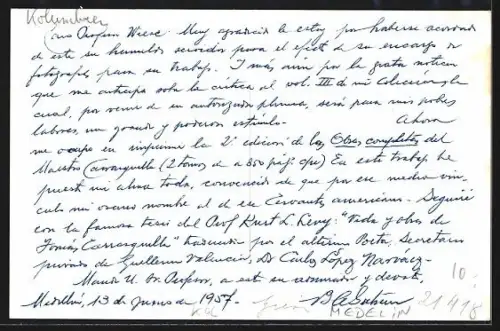 Kolumbien
Caro Profesor         Muy agradecido le estoy por haberse acordado
de este su humilde servidor para el efecto de su encargo de
fotografías para su trabajo. Y más aún por la grata noticia
que me anticipa sobre la crítica al vol. III de mi colección, la
cual, por venir de su autorizada pluma, será para mis pobres
labores, un grande y poderoso estímulo.      Ahora
me ocupo en                la 2ª edición de las Obras completas del
Maestro Carrasquilla (2 tomos de a 850 págs c/u) En este trabajo he
puesto mi alma toda, convencido de que por ese medio vin-
culo mi oscuro nombre al de ese Cervantes americano. Seguiré
con la famosa tesis del Prof Kurt L. Levy: "Vida y obra de
Tomás Carrasquilla" traducida por el altísimo Poeta, Secretario
privado de Guillermo Valencia, Dr Carlos López Narváez.
Mande U. Sr. Profesor, a este su                y devoto.
Medellín, 13 de junio de 1957.
MEDELIN
10.
21418